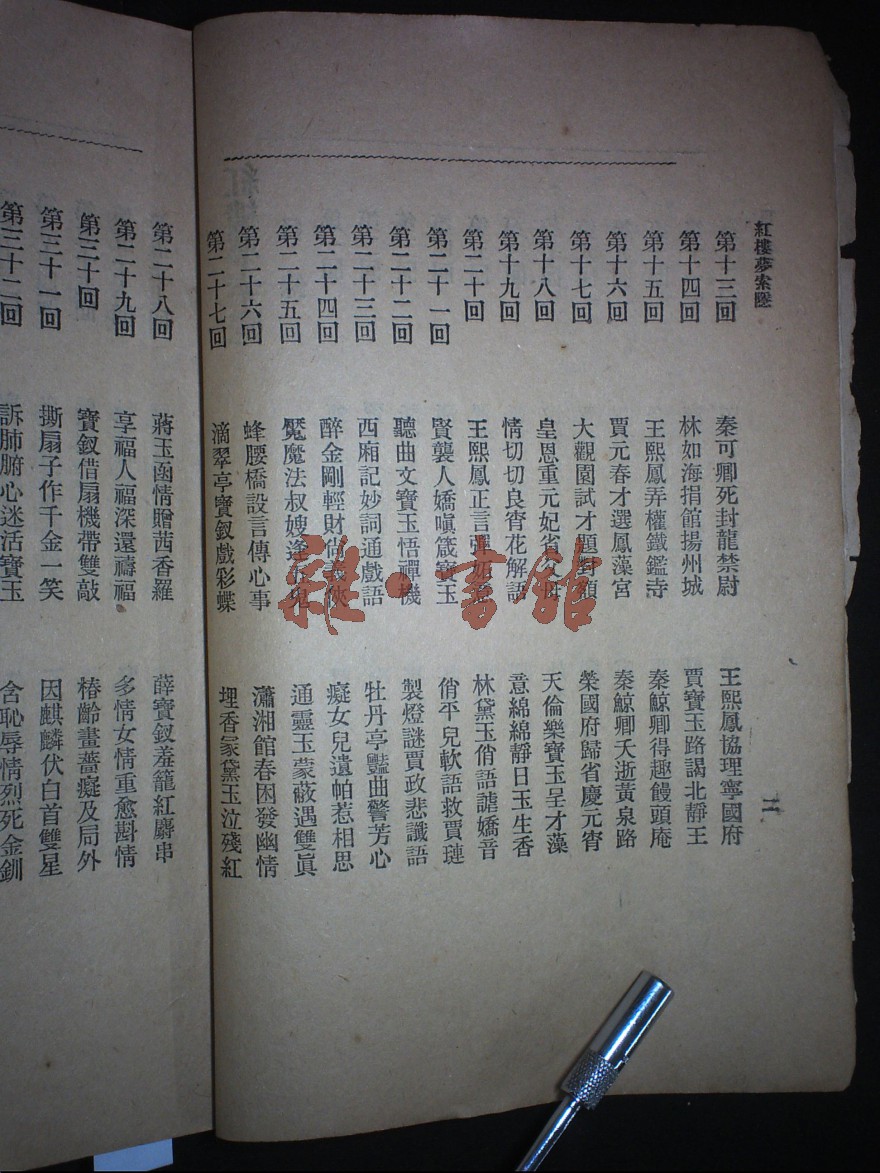 紅樓夢索隱
第十三回 秦可卿死封龍禁尉 王熙鳳協理寧國府
第十四回 林如海捐館揚州城 賈寶玉路謁北靜王
第十五回 王熙鳳弄權鐵鑑寺 秦鯨卿得趣饅頭庵
第十六回 賈元春才選鳳藻宮 秦鯨卿夭逝黃泉路
第十七回 大觀園試才題對額 榮國府歸省慶元宵
第十八回 皇恩重元妃省父母 天倫樂寶玉呈才藻
第十九回 情切切良宵花解語 意綿綿靜日玉生香
第二十回 王熙鳳正言彈妬意 林黛玉俏語謔嬌音
第二十一回 賢襲人嬌嗔箴寶玉 俏平兒軟語救賈璉
第二十二回 聽曲文寶玉悟禪機 製燈謎賈政悲讖語
第二十三回 西廂記妙詞通戲語 牡丹亭豔曲警芳心
第二十四回 醉金剛輕財尚義俠 癡女兒遺帕惹相思
第二十五回 魘魔法叔嫂逢五鬼 通靈玉蒙蔽遇雙眞
第二十六回 蜂腰橋設言傳心事 瀟湘館春困發幽情
第二十七回 滴翠亭寶釵戲彩蝶 埋香冢黛玉泣殘紅
二
第二十八回 蔣玉函情贈茜香羅 薛寶釵羞籠紅麝串
第二十九回 享福人福深還禱福 多情女情重愈斟情
第三十回 寶釵借扇機帶雙敲 椿齡畫薔癡及局外
第三十一回 撕扇子作千金一笑 因麒麟伏白首雙星
第三十二回 訴肺腑心迷活寶玉 含恥辱情烈死金釧
雜·書館